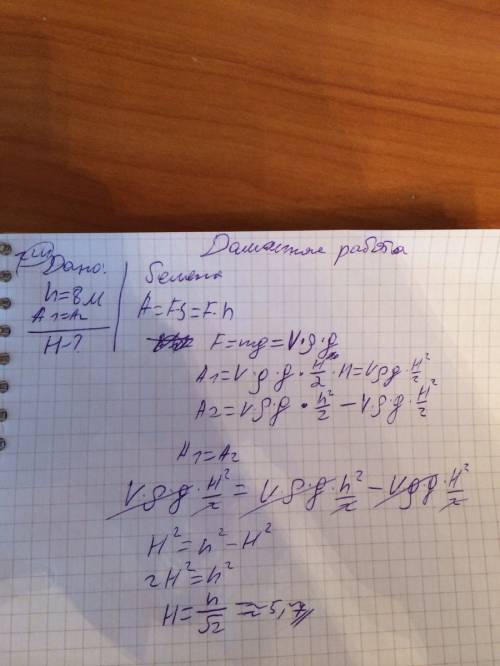 Домашняя работа
Дано:
h=8м
A1=A2
H-?
A=FS=F·h
F=mg=V·ρ·g
A1=V·ρ·g·H/2·H=Vρg·H²/2
A2=V·ρ·g·h²/2-V·ρ·g·H²/2
A1=A2
V·ρ·g·H²/2=V·ρ·g·h²/2-Vρg·H²/2
H²=h²-H²
2H²=h²
H=h/√2=≈5,7